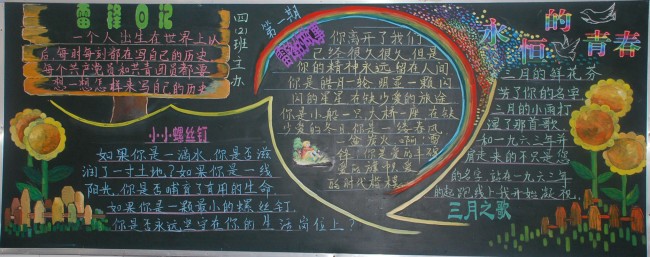 雷锋日记
一个人出生在世界上以
后,每时每刻都在写自己的历史
每个共产党员和共青团员都要
想一想怎样来写自己的历史
四(2)班主办
第一期
小小螺丝钉
如果你是一滴水,你是否滋
润了一寸土地?如果你是一线
阳光,你是否哺育了有用的生命
如果你是一颗最小的螺丝钉
你是否永远坚守在你的生活岗位上?
你离开了我们
已经很久很久,但是
你的精神永远留在人间
你是皓月一轮,明星一颗闪
闪的星星,在缺少爱的旅途
你是小船一只,大桥一座,在缺
少爱的冬日,你是一缕春风
一盆炭火,啊!雷
锋,你是爱的丰碑
爱的旗帜,爱
的时代楷模
永恒的青春
三月的鲜花芬
芳了你的名字
三月的小雨打
湿了那首歌
和一九六三年并
肩走来的不只是您
的名字,站在一九六三年
的起跑线上,我开始凝视,
三月之歌